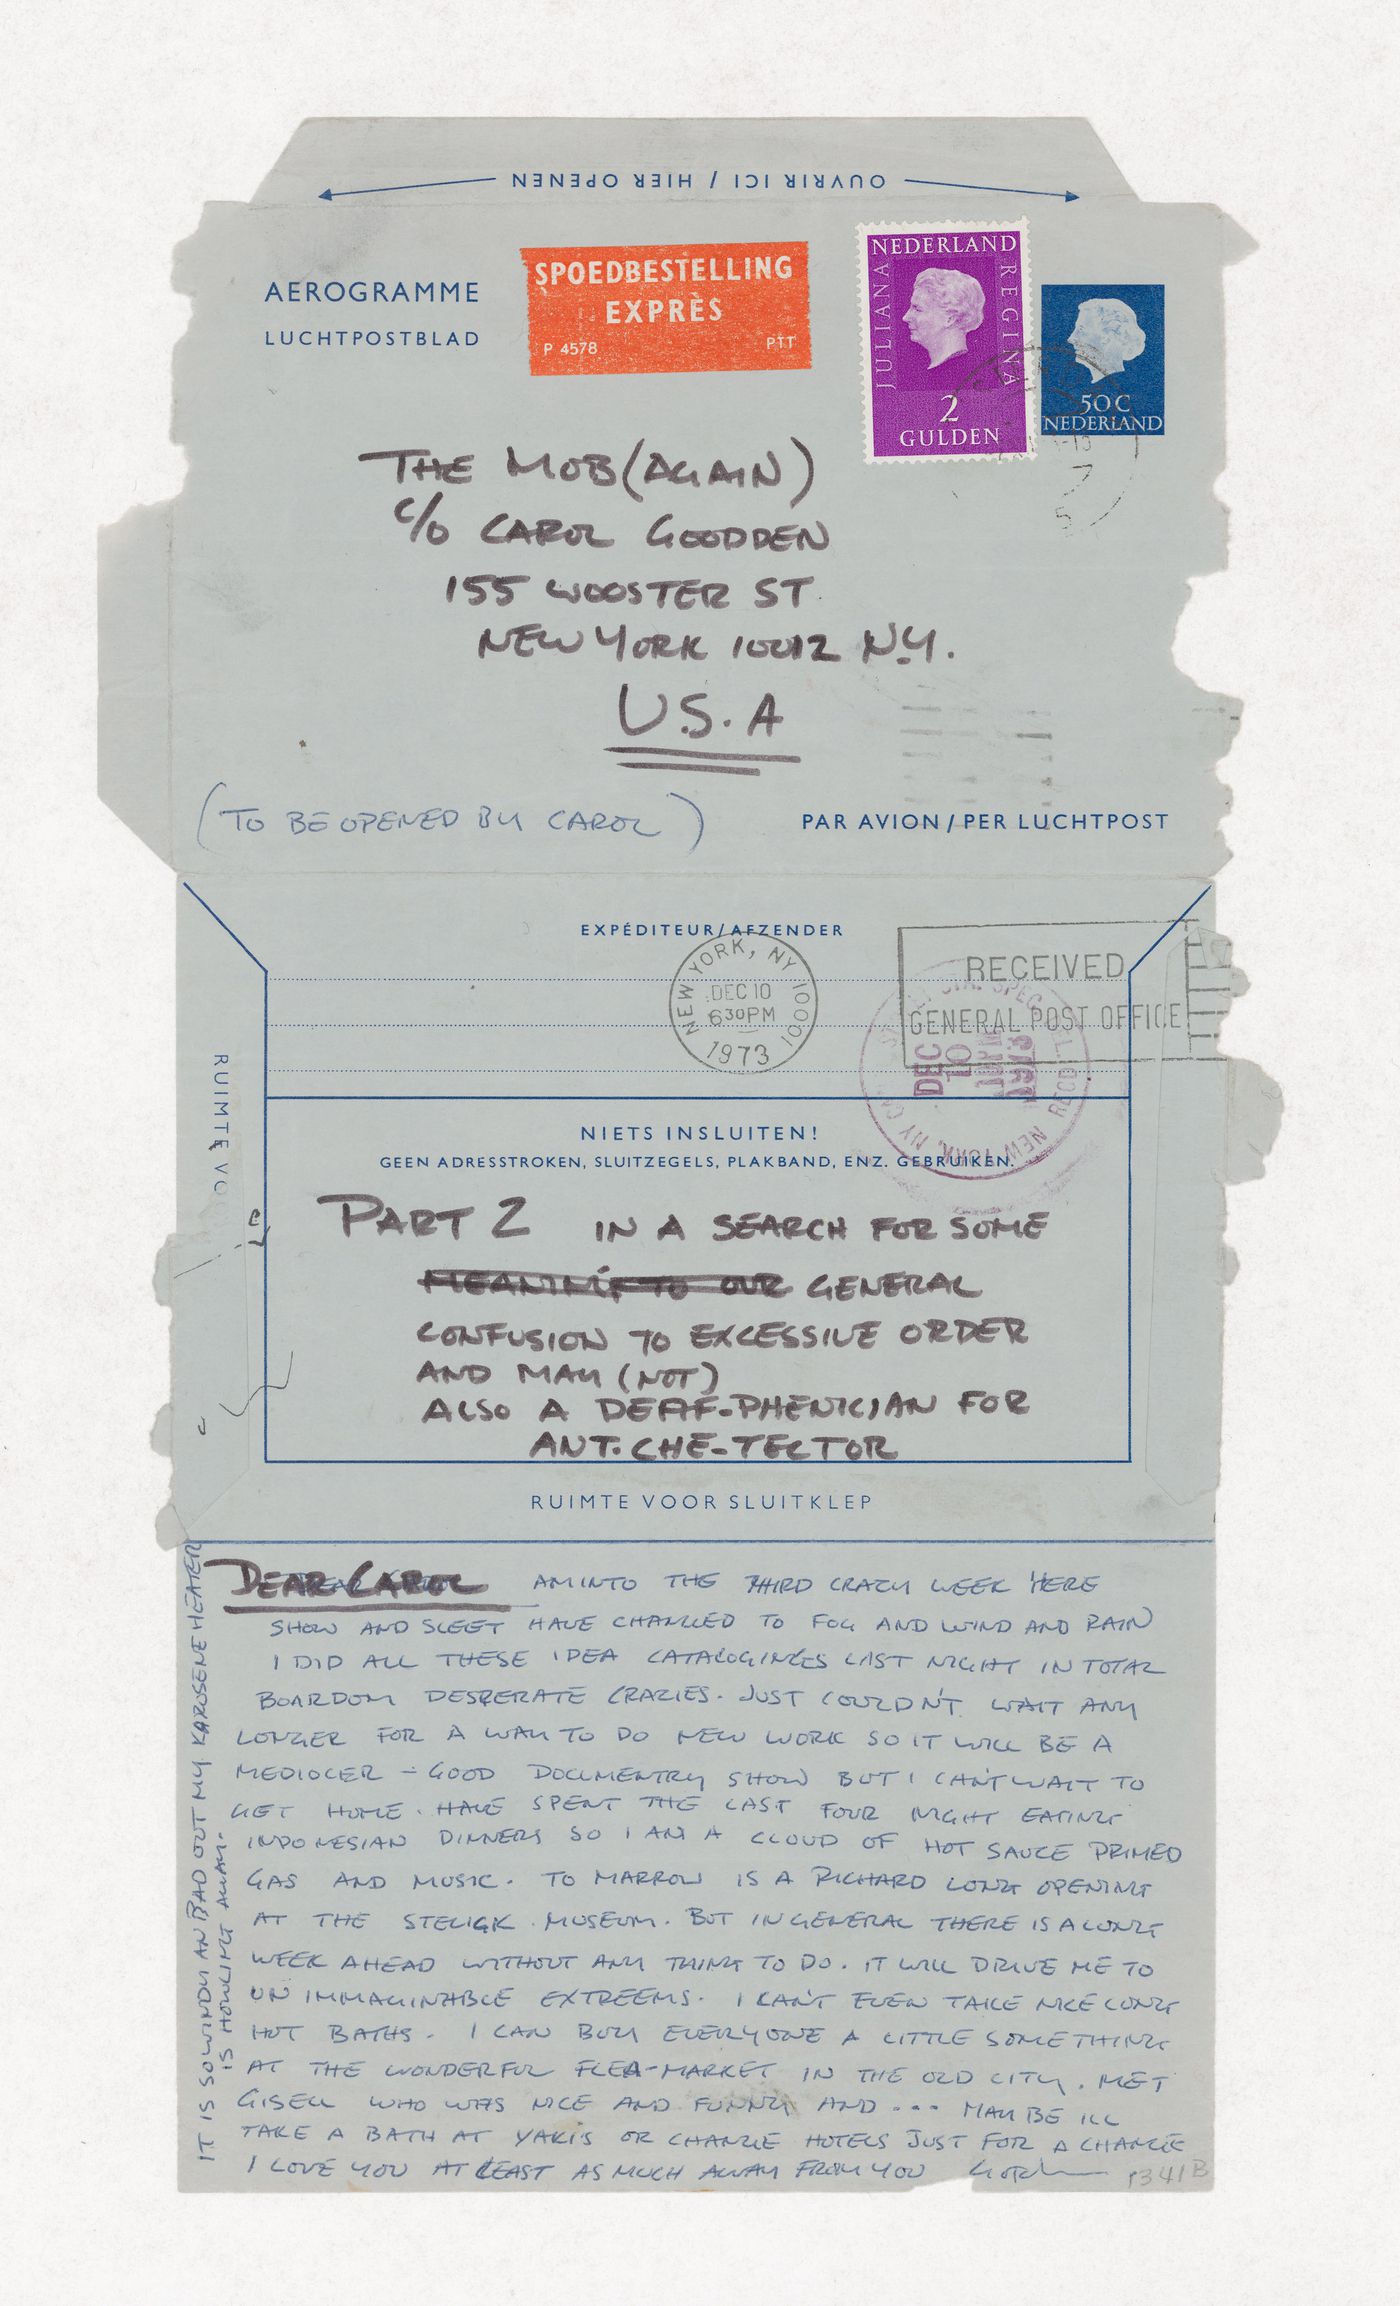 OUVRIR ICI / HIER OPENEN
AEROGRAMME
LUCHTPOSTBLAD
SPOEDBESTELLING
EXPRÈS
P 4578 PTT
NEDERLAND
JULIANA
REGINA
2
GULDEN
50 C
NEDERLAND
THE MOB (AGAIN)
C/O CAROL GOODDEN
155 WOOSTER ST.
NEW YORK 10012 N.Y.
U.S.A
(TO BE OPENED BY CAROL)
PAR AVION / PER LUCHTPOST
EXPÉDITEUR/AFZENDER
NEW YORK, NY 10001
DEC 10
630PM
1973
RECEIVED
GENERAL POST OFFICE
DEC
10
1973
NEW YORK, NY
RUIMTE VO
NIETS INSLUITEN!
GEEN ADRESSTROKEN, SLUITZEGELS, PLAKBAND, ENZ. GEBRUIKEN.
PART 2 IN A SEARCH FOR SOME
MEANING TO OUR GENERAL
CONFUSION TO EXCESSIVE ORDER
AND MAY (NOT)
ALSO A DEAF-PHENICIAN FOR
ANT.CHE-TECTOR
RUIMTE VOOR SLUITKLEP
DEAR CAROL AM INTO THE THIRD CRAZY WEEK HERE
SHOW AND SLEET HAVE CHANGED TO FOG AND WIND AND RAIN
I DID ALL THESE IDEA CATALOGINGES LAST NIGHT IN TOTAL
BOARDOM DESPERATE CRAZIES. JUST COULDN'T WAIT ANY
LONGER FOR A WAY TO DO NEW WORK SO IT WILL BE A
MEDIOCER - GOOD DOCUMENTRY SHOW BUT I CAN'T WAIT TO
GET HOME. HAVE SPENT THE LAST FOUR NIGHT EATING
INDONESIAN DINNERS SO I AM A CLOUD OF HOT SAUCE PRIMED
GAS AND MUSIC. TO MARROW IS A RICHARD LONG OPENING
AT THE STELIGK MUSEUM. BUT IN GENERAL THERE IS A LONG
WEEK AHEAD WITHOUT ANY THING TO DO. IT WILL DRIVE ME TO
UN IMMAGINABLE EXTREEMS. I CAN'T EVEN TAKE NICE LONG
HOT BATHS. I CAN BUY EVERYONE A LITTLE SOMETHING
AT THE WONDERFUL FLEA-MARKET IN THE OLD CITY. MET
GISELL WHO WAS NICE AND FUNNY AND ... MAY BE ILL
TAKE A BATH AT YAKIS OR CHANGE HOTELS JUST FOR A CHANGE
I LOVE YOU AT LEAST AS MUCH AWAY FROM YOU
IT IS SO WINDY AN BAD OUT MY KAROSENE HEATER
IS HOWLING AWAY.